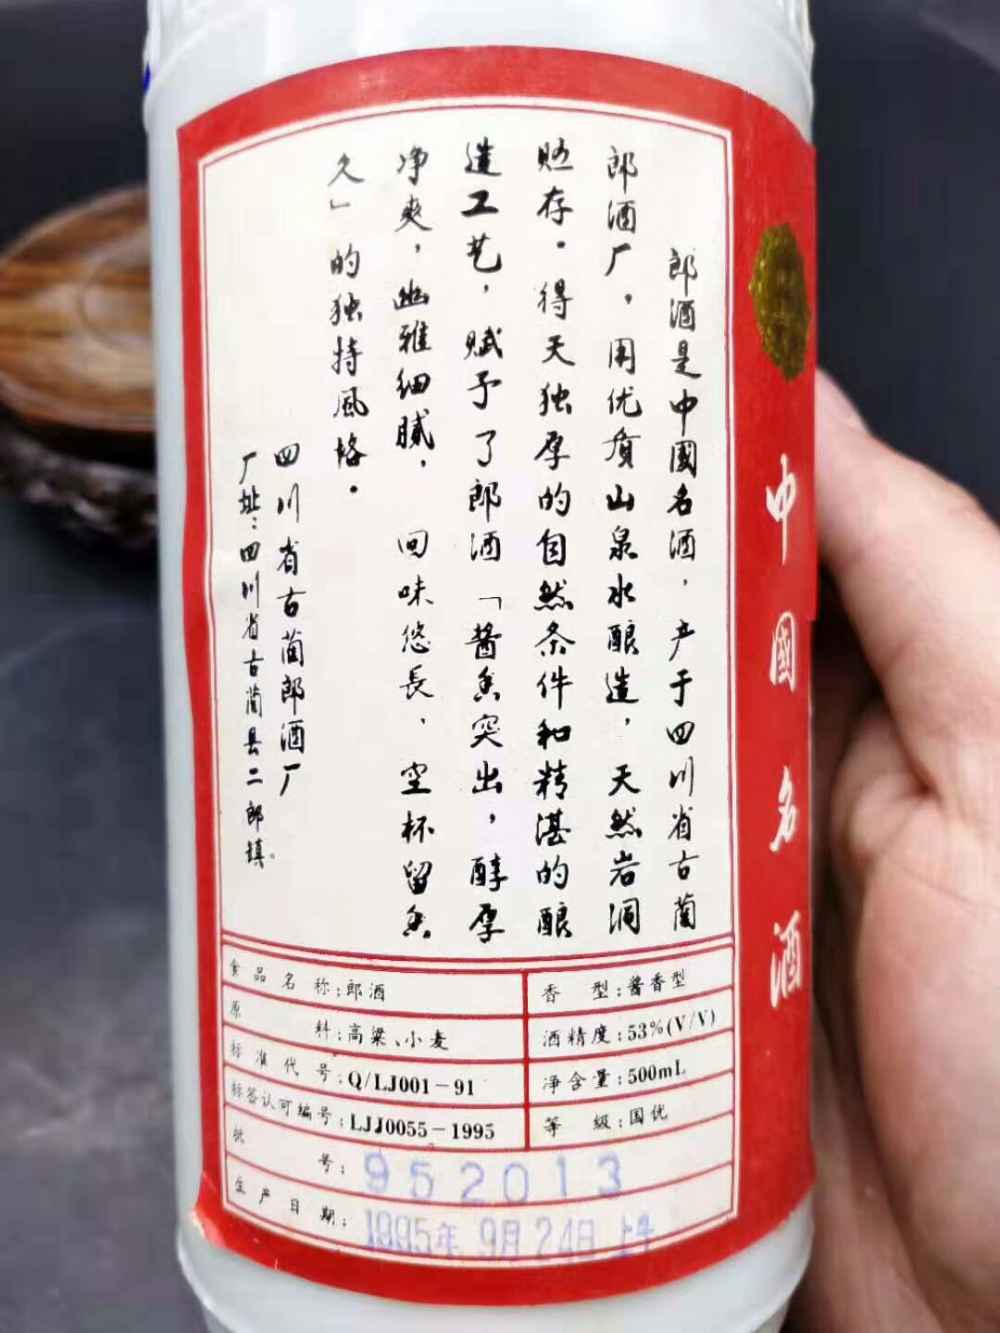 郎酒是中國名酒，产于四川省古蔺
郎酒厂，用优质山泉水酿造，天然岩洞
贮存。得天独厚的自然条件和精湛的酿
造工艺，赋予了郎酒「酱香突出，醇厚
净爽，幽雅细腻，回味悠長，空杯留香
久」的独特風格。
四川省古蔺郎酒厂
厂址：四川省古蔺县二郎镇。
中國名酒
食品名称：郎酒
香型：酱香型
原料：高粱、小麦
酒精度：53%(V/V)
标准代号：Q/LJ001-91
净含量：500mL
标签认可编号：LJJ0055-1995
等级：国优
批号：952013
生产日期：1995年9月24日上午